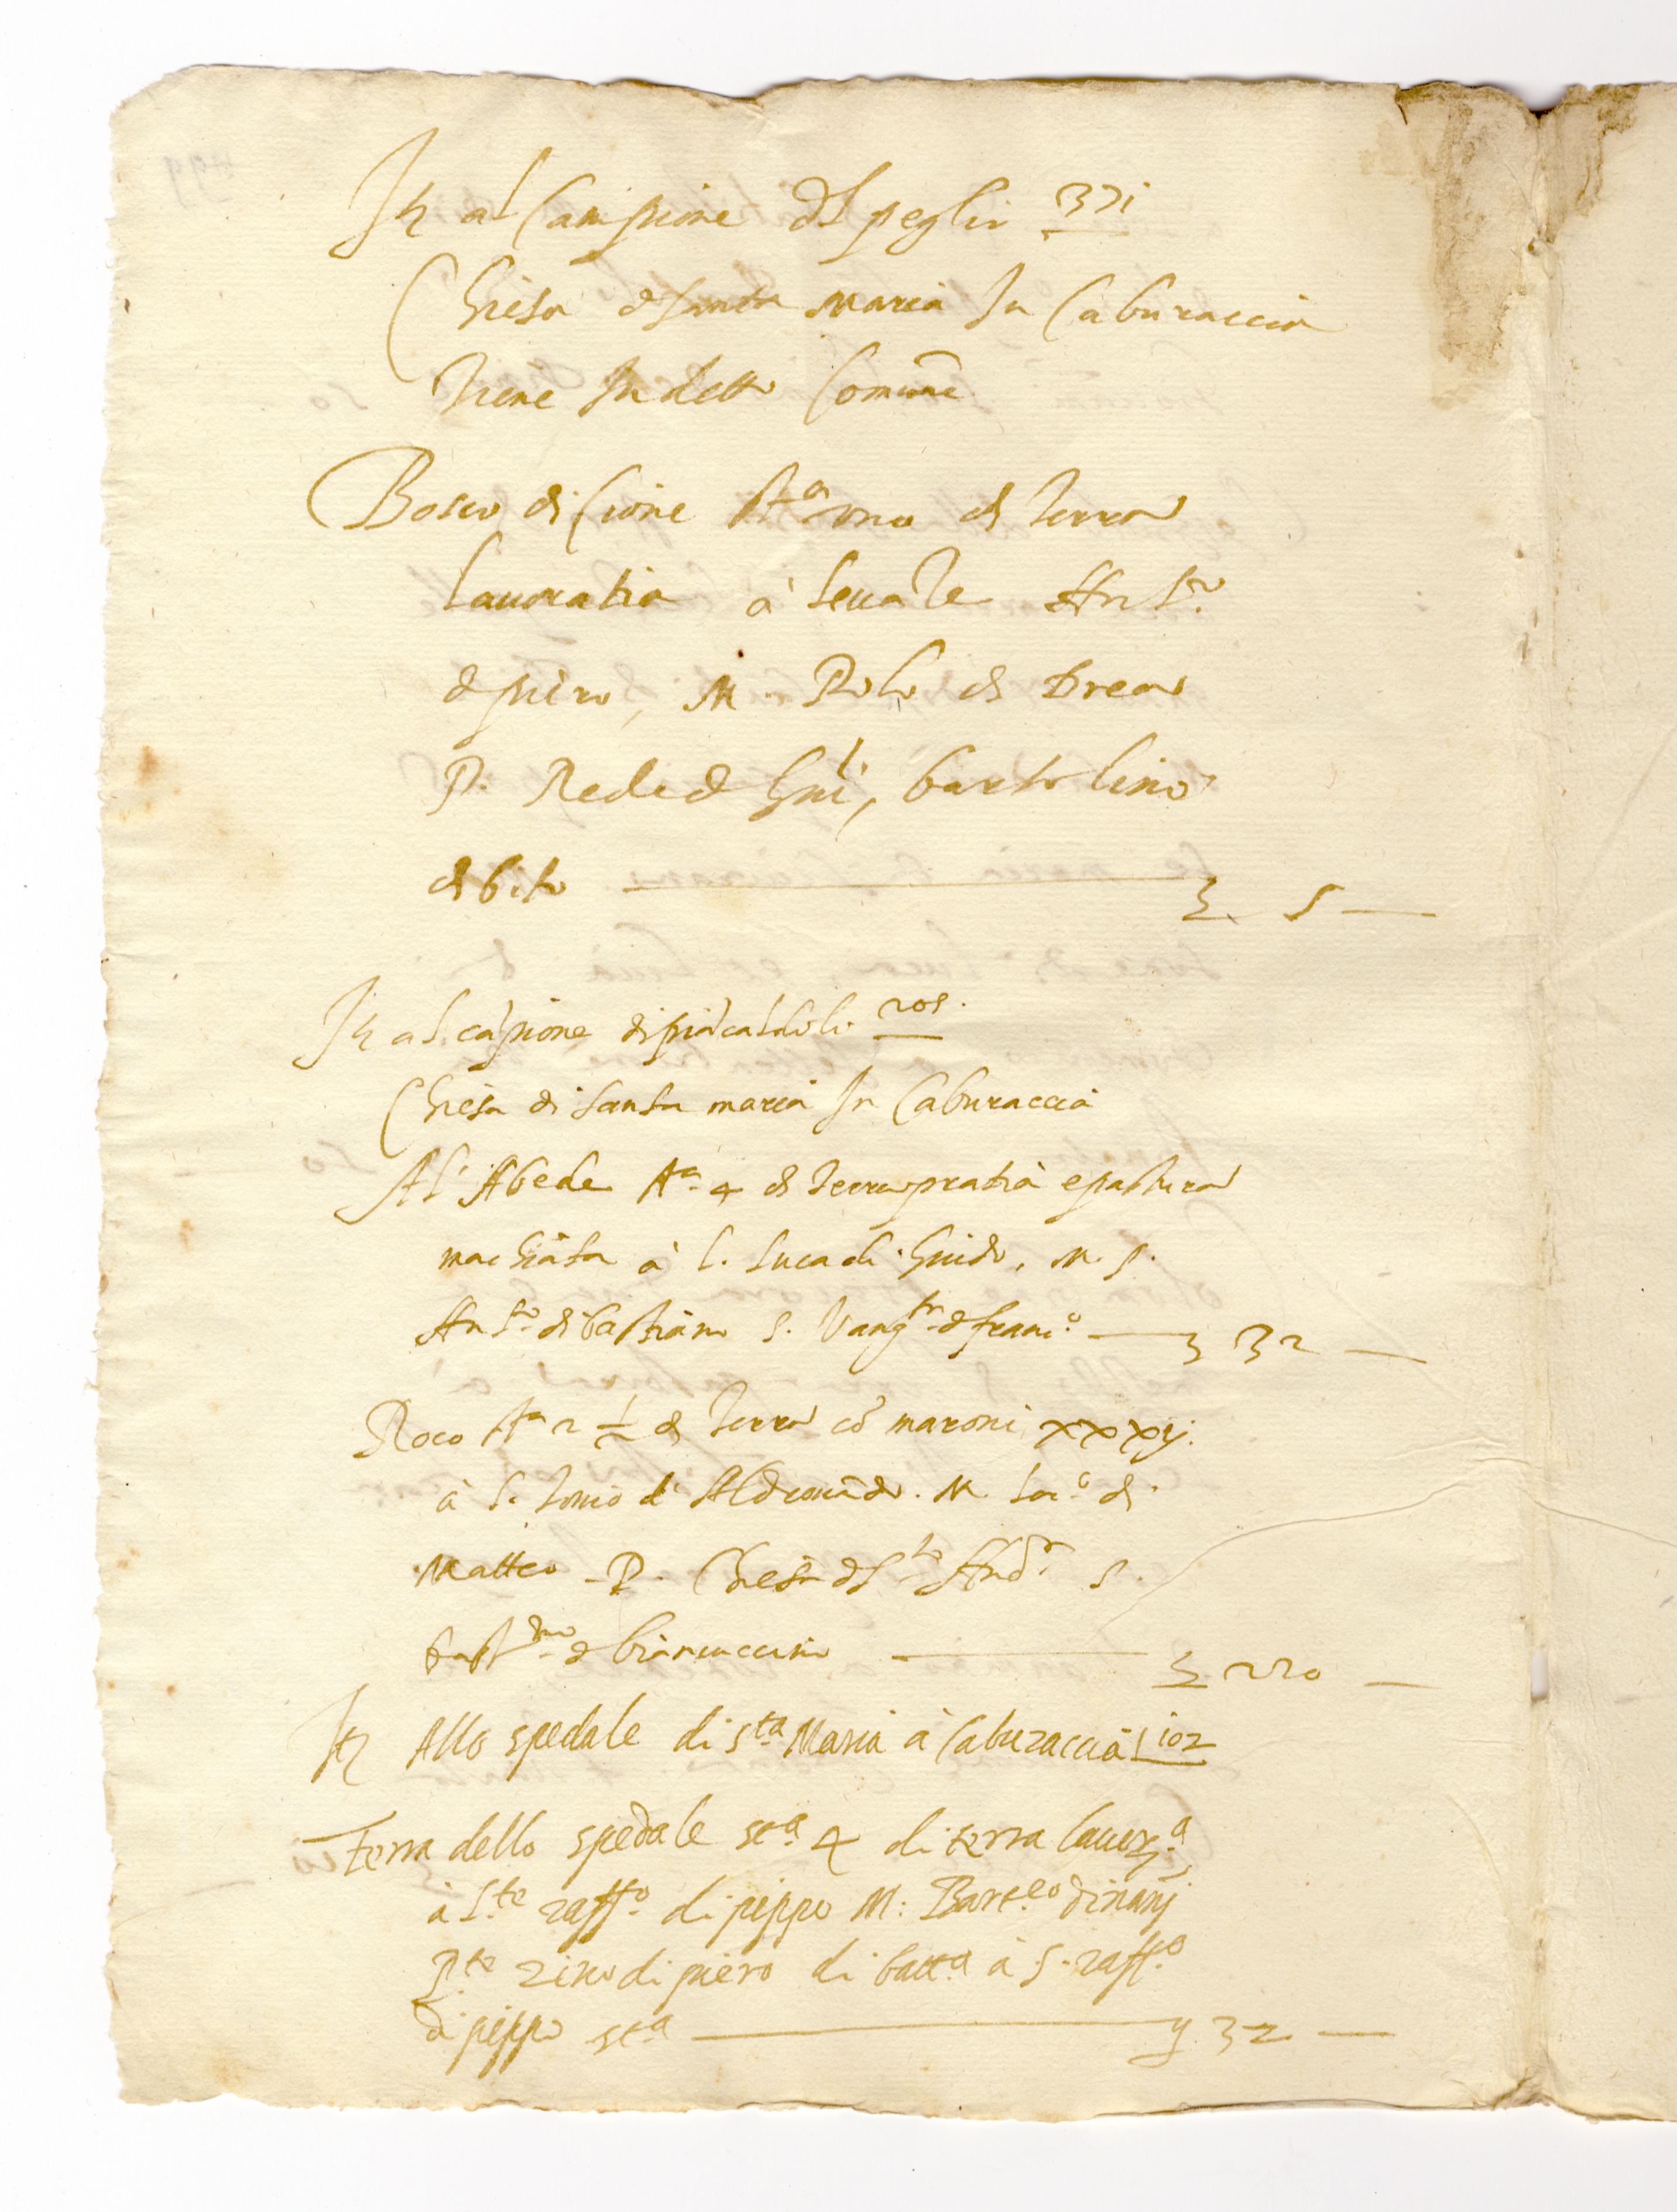 It al Campione di peglio 371
Chiesa di santa maria In Caburaccia
tiene In detto Comune
Bosco di Cione sta uno di terra
lauoratia à leuante Anto
di piero, M. Polo di Drea
P. Rede di Gui, bartolino
di bito 5
It al capione di piacaldoli 205
Chiesa di santa maria In Caburaccia
Al Abede sta 4 di terra pratia e pastura
machiata à l. luca di Guido, M. S.
Anto di bastiano S. Vangta di franco 32
Roco sta 2 1/2 di terra co maroni xxxij.
à l. tonio d' Aldrouado. M di
Matteo P. Chiesa di Sto Andr S.
di bianuccino 220
It Allo spedale di Sta Maria à Caburaccia 102
Terra dello spedale sta 4 di terra lauora
à Lte raffo di pippo M: Barteo di nanj
Pte zino di piero di batta à S. raffo
di pippo sta 32